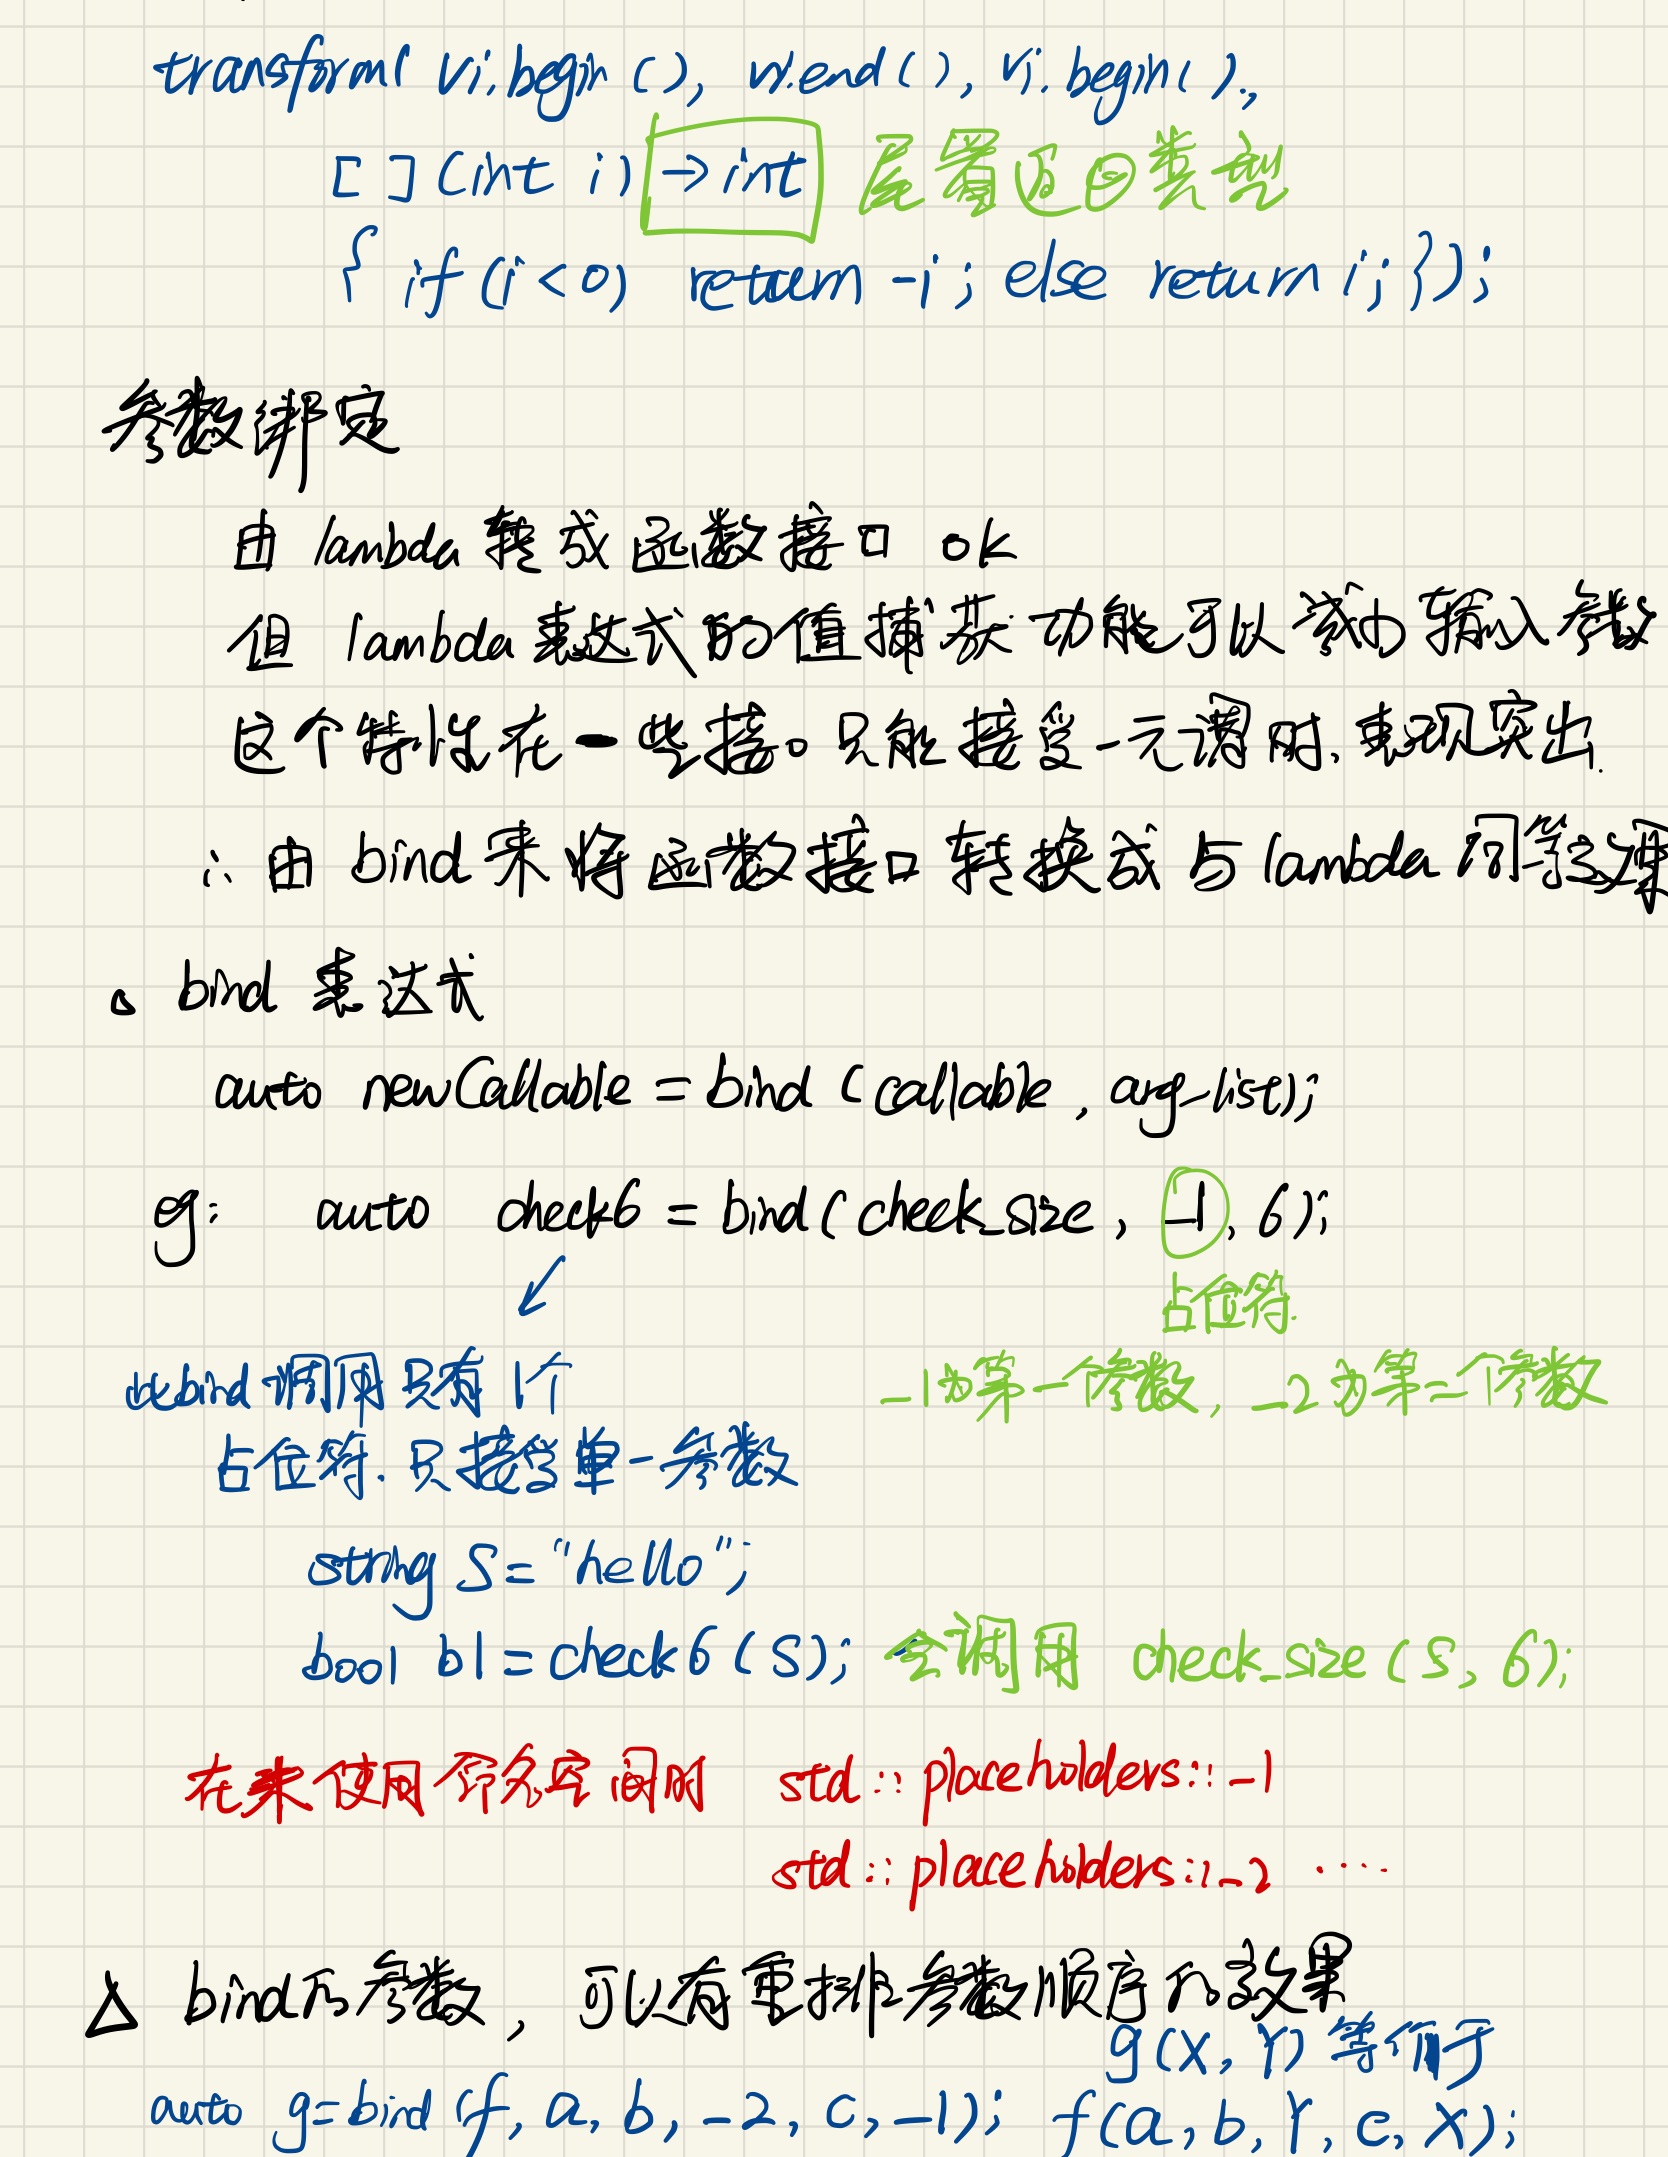 transform( vi.begin(), vi.end(), vi.begin(),
[ ](int i) ->int 尾置返回类型
{ if (i<0) return -i; else return i; });
参数绑定
由 lambda 转成函数接口 ok
但 lambda 表达式的值捕获功能可以减少输入参数
这个特性在一些接口只能接受一元谓词时,表现突出.
∴ 由 bind 来将函数接口转换成与 lambda 同等效果
。bind 表达式
auto newCallable = bind (callable, arg_list);
eg: auto check6 = bind( check_size, _1, 6);
占位符.
bind 调用只有 1个
_1为第一个参数, _2为第二个参数
占位符.只接受单一参数
string S= "hello";
bool b1 = check6 ( S ); 会调用 check_size ( S, 6);
在未使用命名空间时 std :: placeholders::_1
std :: placeholders::_2 ····
△ bind的参数, 可以有重排参数顺序的效果
g(X, Y) 等价于
auto g=bind (f, a, b, _2, c, _1); f(a, b, Y, c, X);